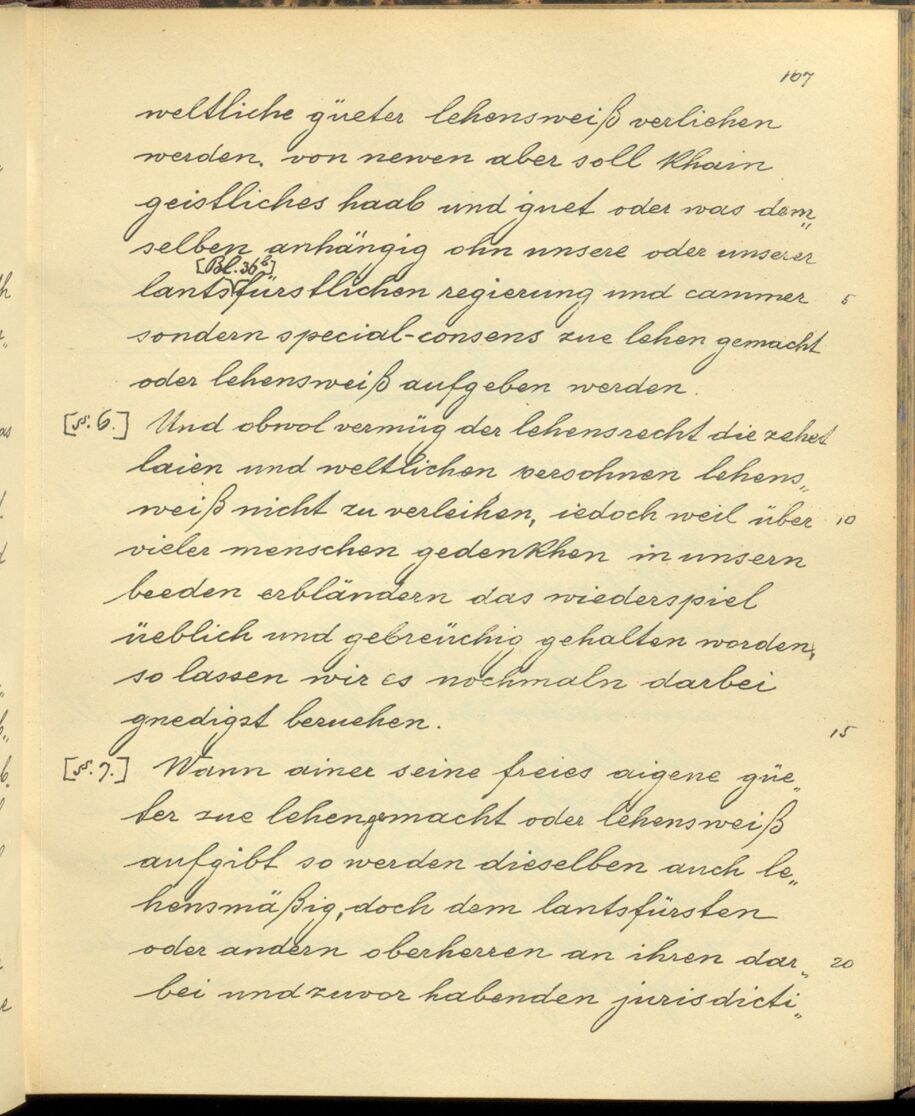 107
weltliche güeter lehensweiß verliehen
werden. von newen aber soll khain
geistliches haab und guet oder was dem„
selben anhängig ohn unsere oder unserer
[Bl. 36b]
lantsfürstlichen regierung und cammer 5
sondern special-consens zue lehen gemacht
oder lehensweiß aufgeben werden.
[§. 6.] Und obwol vermüg der lehensrecht die zehet
laien und weltlichen persohnen lehens„
weiß nicht zu verleihen, iedoch weil über 10
vieler menschen gedenkhen in unsern
beeden erbländern das wiederspiel
üeblich und gebreüchig gehalten worden,
so lassen wir es nochmaln darbei
gnedigst beruehen. 15
[§. 7.] Wann ainer seine freies aigene güe„
ter zue lehen gemacht oder lehensweiß
aufgibt so werden dieselben auch le„
hensmäßig, doch dem lantsfürsten
oder andern oberherren an ihren dar„ 20
bei und zuvor habenden jurisdicti„